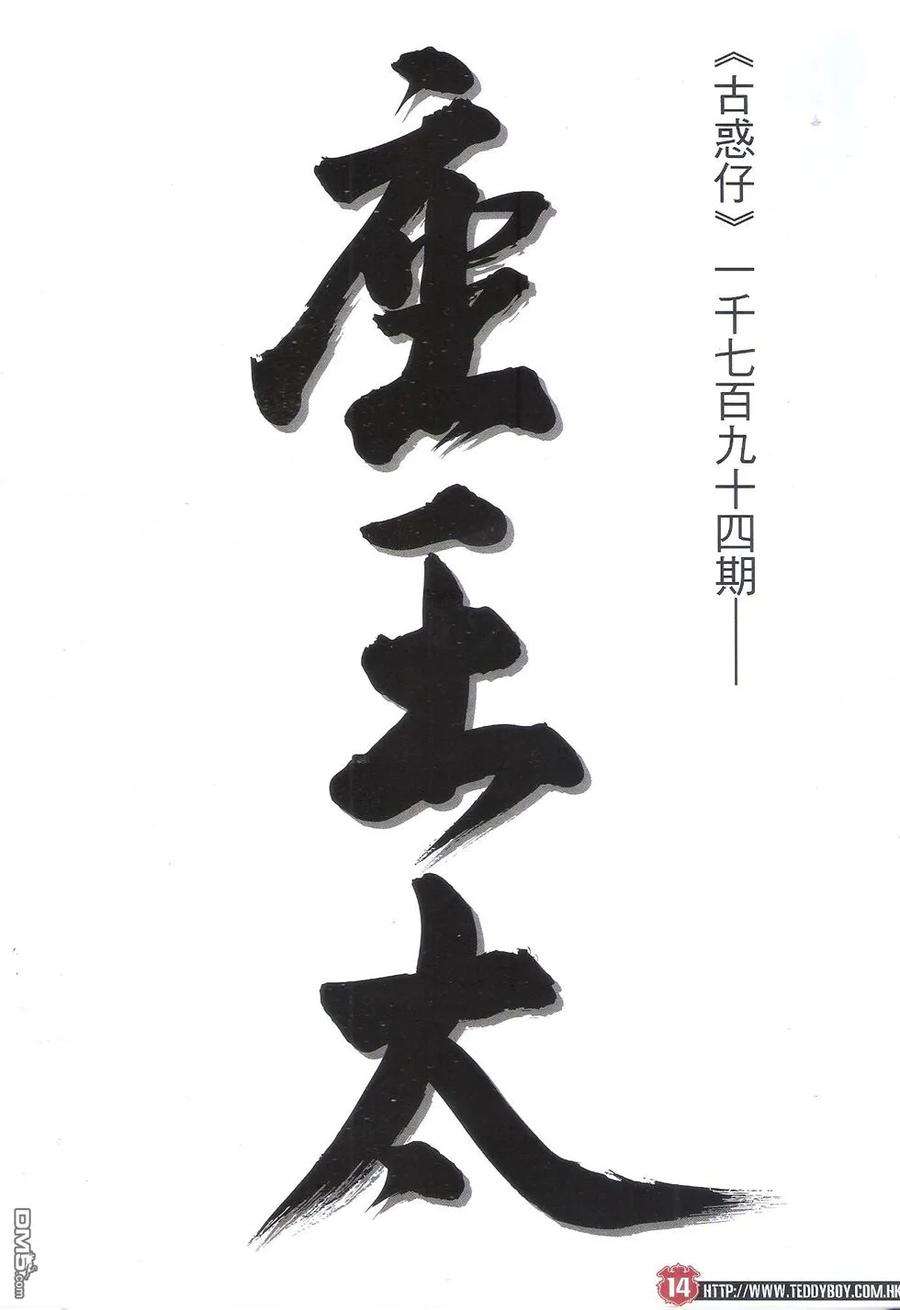 《古惑仔》一千七百九十四期——
座王太
14 HTTP://WWW.TEDDYBOY.COM.HK
DM5.com